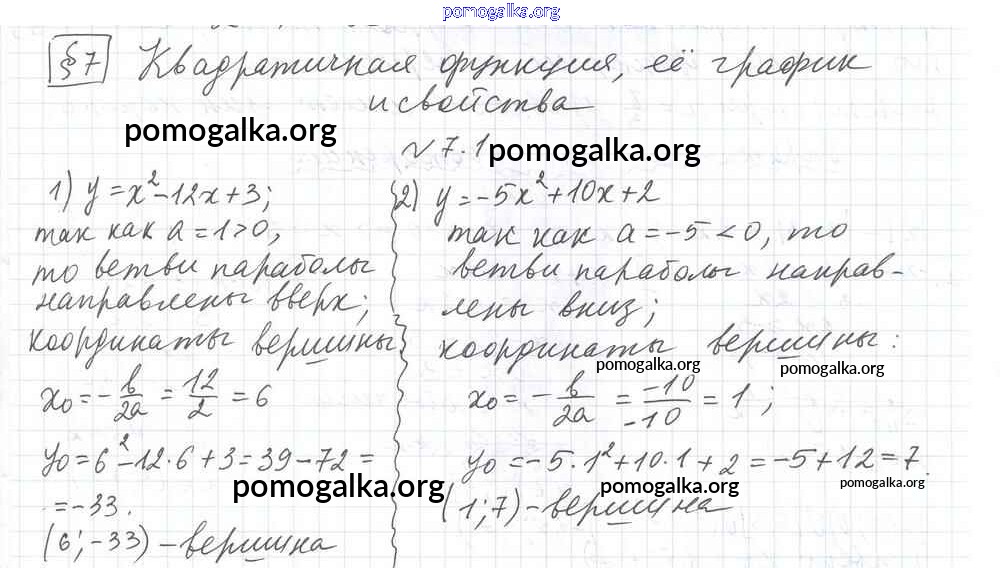 pomogalka.org
§7 Квадратичная функция, её график
и свойства
pomogalka.org
№ 7.1 pomogalka.org
1) y = x² - 12x + 3;
так как a = 1 > 0,
то ветви параболы
направлены вверх;
координаты вершины
x₀ = - b/2a = 12/2 = 6
y₀ = 6² - 12·6 + 3 = 39 - 72 =
= -33.
pomogalka.org
(6; -33) - вершина
2) y = -5x² + 10x + 2
так как a = -5 < 0, то
ветви параболы направ-
лены вниз;
координаты вершины:
pomogalka.org
pomogalka.org
x₀ = - b/2a = -10/-10 = 1;
y₀ = -5·1² + 10·1 + 2 = -5 + 12 = 7.
pomogalka.org
pomogalka.org
(1; 7) - вершина